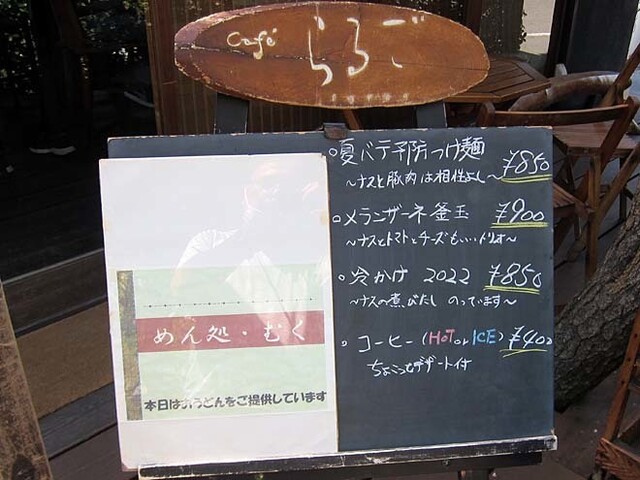 Café らるご
めん処・むく
本日は うどんをご提供しています
○夏バテ予防つけ麺 ¥850
～ナスと豚肉は相性よし～
・メランザーネ釜玉 ¥900
～ナスとトマトとチーズも
・冷かけ 2022 ¥850
～ナスの煮びたし のっています～
・コーヒー(HOT or ICE) ¥400
ちょこっとデザート付